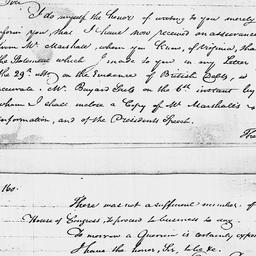 Sir,
I do myself the honor of writing to you merely
inform you that I have now received an assurance
from Mr. Marshall, whom you know, of Virginia, that
the Statement which I made to you in my Letter
the 29th ulto. on the Evidence of British Debts, is
accurate. Mr. Bayard Sails on the 6th instant by
whom I shall inclose a Copy of Mr. Marshall's
information, and of the Presidents Speech.
The
160.
There was not a sufficient number of
House of Congress, to proceed to business to day.
To morrow a Quorum is certainly expec
I have the honor, Sir, to be &c.